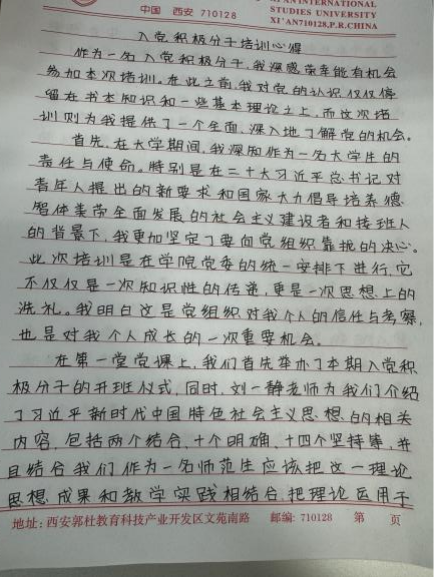 XI'AN INTERNATIONAL
STUDIES UNIVERSITY
中国 西安 710128 XI'AN710128,P.R.CHINA
入党积极分子培训心得
作为一名入党积极分子,我深感荣幸能有机会
参加本次培训。在此之前,我对党的认识仅仅停
留在书本知识和一些基本理论之上,而这次培
训则为我提供了一个全面、深入地了解党的机会。
首先,在大学期间,我深知作为一名大学生的
责任与使命。特别是在二十大习近平总书记对
青年人提出的新要求和国家大力倡导培养德
智体美劳全面发展的社会主义建设者和接班人
的背景下,我更加坚定了要向党组织靠拢的决心。
此次培训是在学院党委的统一安排下进行,它
不仅仅是一次知识性的传递,更是一次思想上的
洗礼。我明白这是党组织对我个人的信任与考察,
也是对我个人成长的一次重要机会。
在第一堂党课上,我们首先举办了本期入党积
极分子的开班仪式,同时,刘一静老师为我们介绍
了习近平新时代中国特色社会主义思想的相关
内容,包括两个结合、十个明确、十四个坚持等,并
且结合我们作为一名师范生应该把这一理论
思想成果和教学实践相结合,把理论运用于
地址:西安郭杜教育科技产业开发区文苑南路 邮编:710128 第 页